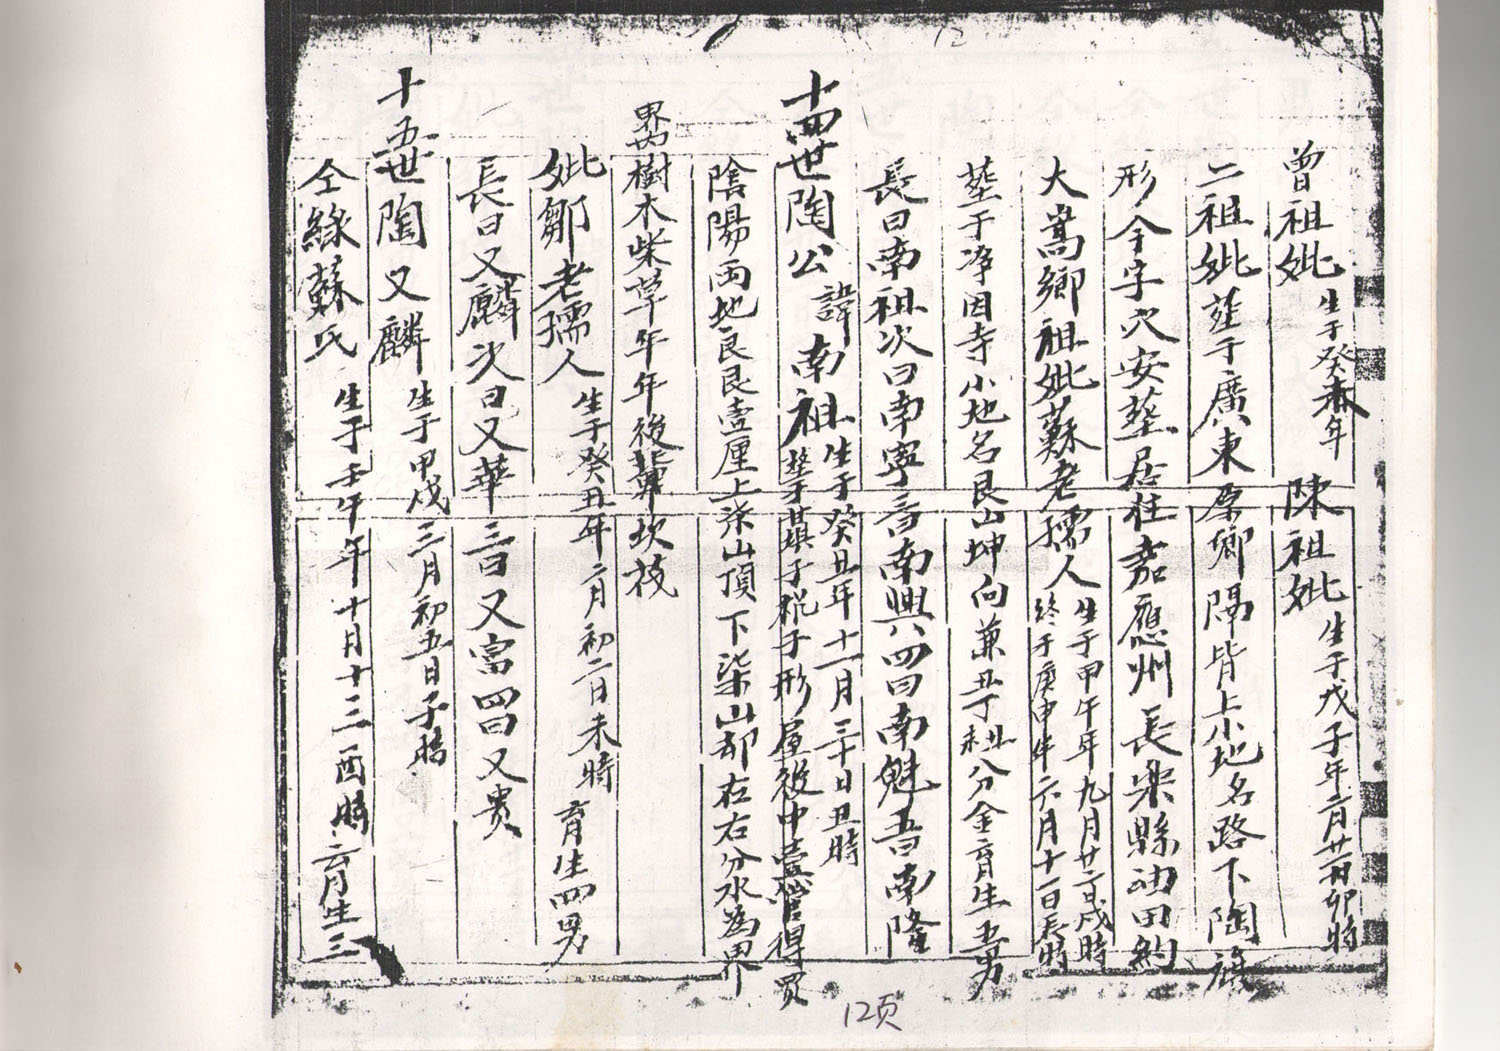 曾祖妣生于癸未年 陳祖妣生于戊子年六月廿一日卯時
二祖妣葬于廣東原鄉隔背上小地名路下陶
形全字穴安塟居住嘉應州長楽縣油田約
大嵩鄉祖妣蘇老孺人生于甲午年九月廿二日戌時終于庚申年六月十一日辰時
塟于净因寺小地名艮山坤向兼丑丁未分金育生五男
長曰南祖次曰南寧三曰南興四曰南魁五曰南隆
十四世陶公諱南祖生于癸丑年十一月三十日丑時塟于子形屋後中壹得買
陰陽兩地艮壹厘上柒山頂下柒山却在右分水為界
界內樹木柴草年年後坎坟
妣鄒老孺人生于癸丑年六月初二日未時育生四男
長曰又麟次曰又華三曰又富四曰又贵
十五世陶又麟生于甲戌三月初五日子時
仝緣蘇氏生于壬午年十月十三酉時育生三
12页